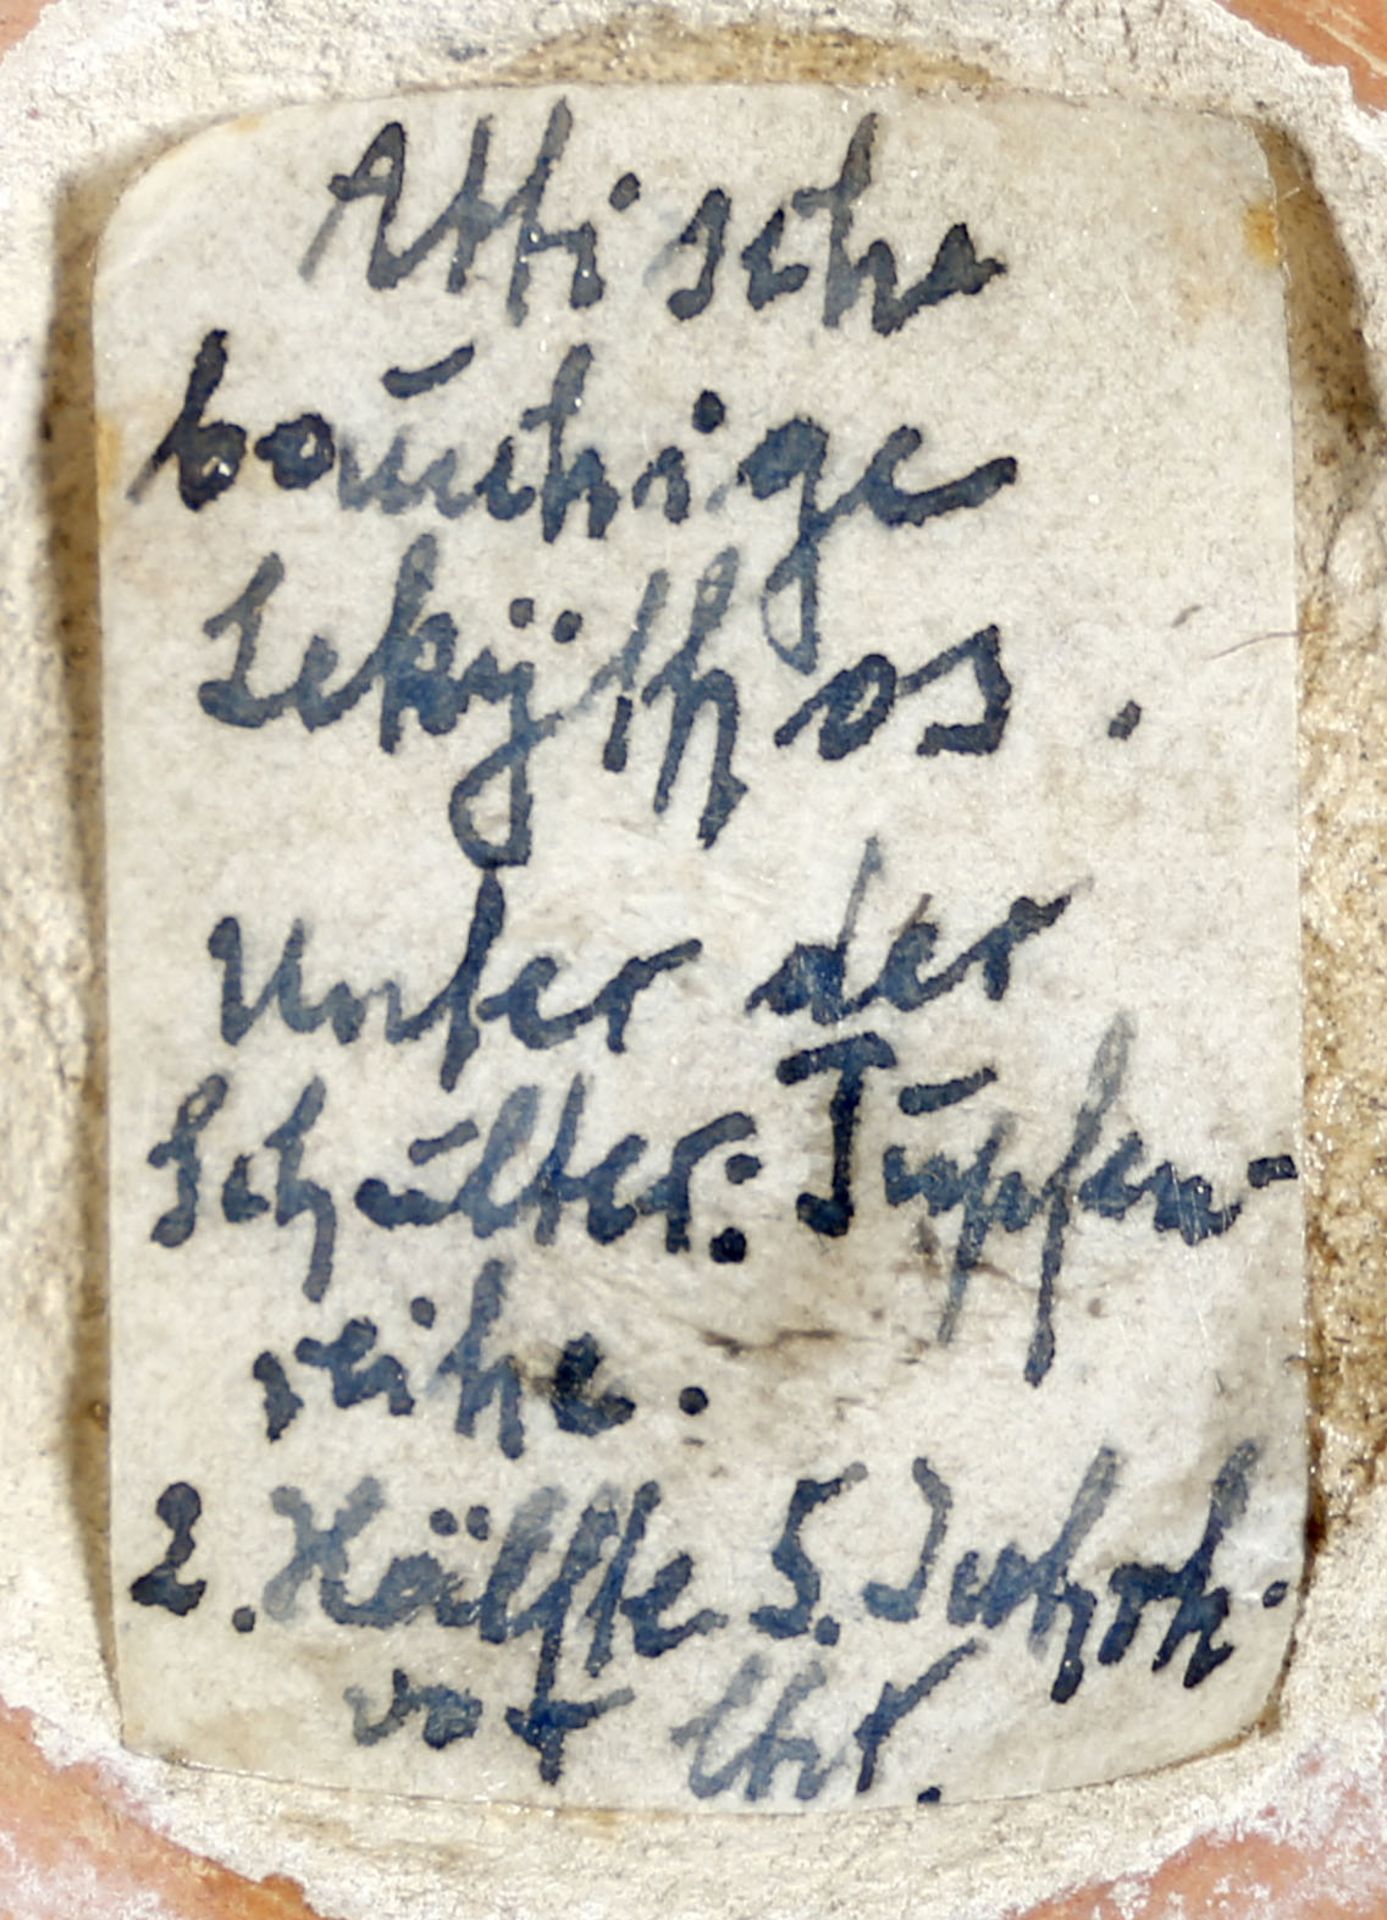 Attische
bauchige
Lekÿthos.
Unter der
Schulter: Tupfen-
reihe.
2. Hälfte 5. Jahrh.
vor Chr.